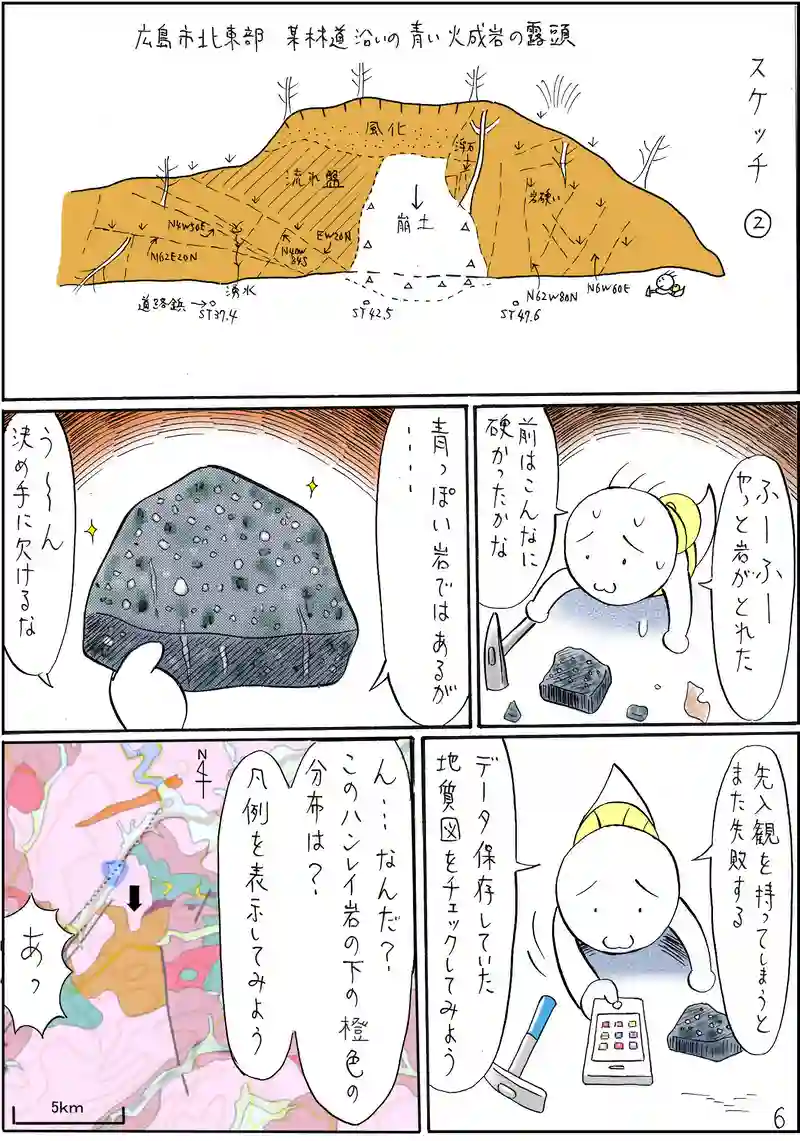 広島市北東部 某林道沿いの青い火成岩の露頭
スケッチ②
風化
浮石
流れ盤
崩土
岩硬い
N4W50E
N62E20N
N40W
84S
EW20N
N62W80N
N6W60E
湧水
道路鋲→
ST37.4
ST42.5
ST47.6
ふーふー
やっと岩がとれた
前はこんなに
硬かったかな
青っぽい岩ではあるが
‥‥
う～ん
決め手に欠けるな
先入観を持ってしまうと
また失敗する
データ保存していた
地質図をチェックしてみよう
ん…なんだ？
このハンレイ岩の下の橙色の
分布は？
凡例を表示してみよう
あっ
N
5km
6